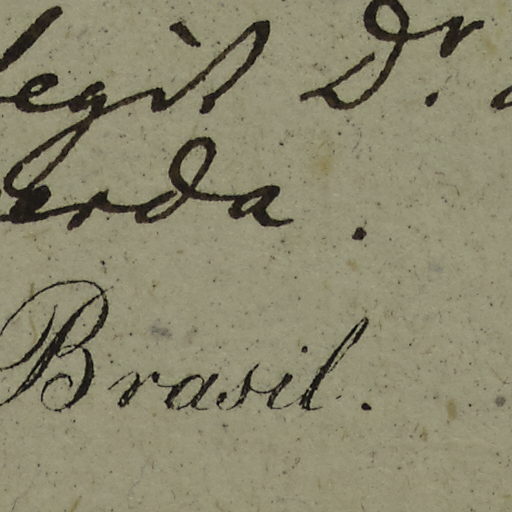 legit Dr.
erda.
Brasil.